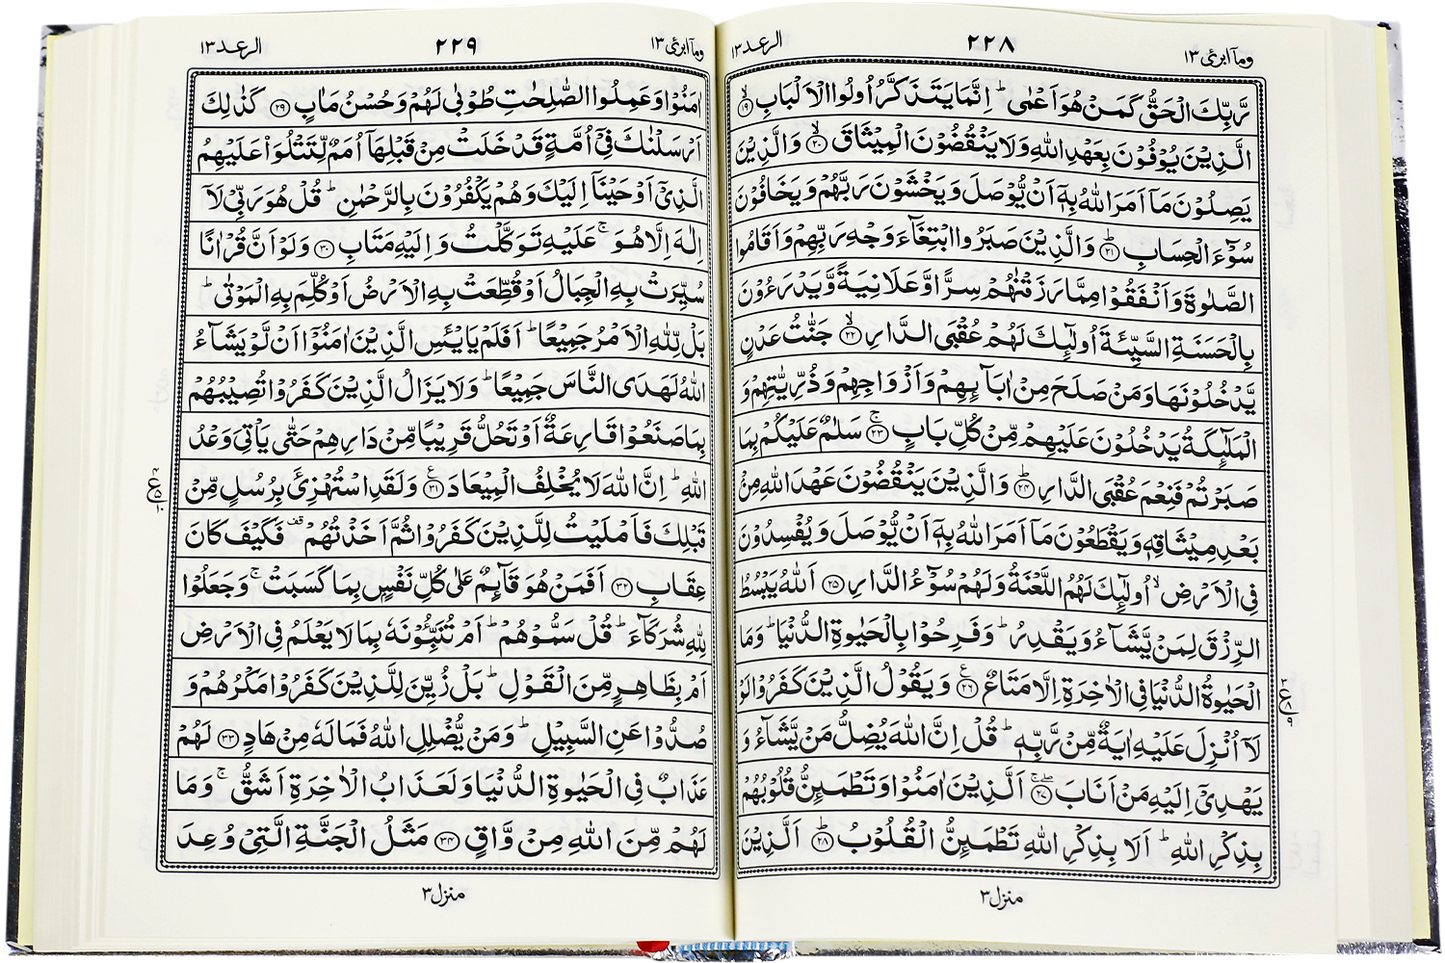 وما ابرئ ١٣
٢٢٨
الرعد ١٣
رَّبِّكَ الْحَقُّ كَمَنْ هُوَ اَعْمٰى ؕ اِنَّمَا يَتَذَكَّرُ اُولُوا الْاَلْبَابِ ۙ‏﴿۱۹﴾
الَّذِيْنَ يُوْفُوْنَ بِعَهْدِ اللّٰهِ وَلَا يَنْقُضُوْنَ الْمِيْثَاقَ ۙ‏﴿۲۰﴾ وَالَّذِيْنَ
يَصِلُوْنَ مَاۤ اَمَرَ اللّٰهُ بِهٖۤ اَنْ يُّوْصَلَ وَيَخْشَوْنَ رَبَّهُمْ وَيَخَافُوْنَ
سُوْٓءَ الْحِسَابِ ؕ‏﴿۲۱﴾ وَالَّذِيْنَ صَبَرُوا ابْتِغَآءَ وَجْهِ رَبِّهِمْ وَاَقَامُوا
الصَّلٰوةَ وَاَنْفَقُوْا مِمَّا رَزَقْنٰهُمْ سِرًّا وَّعَلَانِيَةً وَّيَدْرَءُوْنَ
بِالْحَسَنَةِ السَّيِّئَةَ اُولٰٓئِكَ لَهُمْ عُقْبَى الدَّارِ ۙ‏﴿۲۲﴾ جَنّٰتُ عَدْنٍ
يَّدْخُلُوْنَهَا وَمَنْ صَلَحَ مِنْ اٰبَآئِهِمْ وَاَزْوَاجِهِمْ وَذُرِّيّٰتِهِمْ وَ
الْمَلٰٓئِكَةُ يَدْخُلُوْنَ عَلَيْهِمْ مِّنْ كُلِّ بَابٍ ۚ‏﴿۲۳﴾ سَلٰمٌ عَلَيْكُمْ بِمَا
صَبَرْتُمْ فَنِعْمَ عُقْبَى الدَّارِ ؕ‏﴿۲۴﴾ وَالَّذِيْنَ يَنْقُضُوْنَ عَهْدَ اللّٰهِ مِنْۢ
بَعْدِ مِيْثَاقِهٖ وَيَقْطَعُوْنَ مَاۤ اَمَرَ اللّٰهُ بِهٖۤ اَنْ يُّوْصَلَ وَيُفْسِدُوْنَ
فِى الْاَرْضِ ۙ اُولٰٓئِكَ لَهُمُ اللَّعْنَةُ وَلَهُمْ سُوْٓءُ الدَّارِ‏﴿۲۵﴾ اَللّٰهُ يَبْسُطُ
الرِّزْقَ لِمَنْ يَّشَآءُ وَيَقْدِرُ ؕ وَفَرِحُوْا بِالْحَيٰوةِ الدُّنْيَا ؕ وَمَا
الْحَيٰوةُ الدُّنْيَا فِى الْاٰخِرَةِ اِلَّا مَتَاعٌ‏﴿۲۶﴾ وَيَقُوْلُ الَّذِيْنَ كَفَرُوْا لَوْ
لَاۤ اُنْزِلَ عَلَيْهِ اٰيَةٌ مِّنْ رَّبِّهٖ ؕ قُلْ اِنَّ اللّٰهَ يُضِلُّ مَنْ يَّشَآءُ وَ
يَهْدِىْۤ اِلَيْهِ مَنْ اَنَابَ ۖ ۚ‏﴿۲۷﴾ اَلَّذِيْنَ اٰمَنُوْا وَتَطْمَئِنُّ قُلُوْبُهُمْ
بِذِكْرِ اللّٰهِ ؕ اَلَا بِذِكْرِ اللّٰهِ تَطْمَئِنُّ الْقُلُوْبُ ؕ‏﴿۲۸﴾ اَلَّذِيْنَ
منزل ٣
وما ابرئ ١٣
٢٢٩
الرعد ١٣
اٰمَنُوْا وَعَمِلُوا الصّٰلِحٰتِ طُوْبٰى لَهُمْ وَحُسْنُ مَاٰبٍ‏﴿۲۹﴾ كَذٰلِكَ
اَرْسَلْنٰكَ فِىْۤ اُمَّةٍ قَدْ خَلَتْ مِنْ قَبْلِهَاۤ اُمَمٌ لِّتَتْلُوَا۟ عَلَيْهِمُ
الَّذِىْۤ اَوْحَيْنَاۤ اِلَيْكَ وَهُمْ يَكْفُرُوْنَ بِالرَّحْمٰنِ ؕ قُلْ هُوَ رَبِّىْ لَاۤ
اِلٰهَ اِلَّا هُوَ ۚ عَلَيْهِ تَوَكَّلْتُ وَاِلَيْهِ مَتَابِ‏﴿۳۰﴾ وَلَوْ اَنَّ قُرْاٰنًا
سُيِّرَتْ بِهِ الْجِبَالُ اَوْ قُطِّعَتْ بِهِ الْاَرْضُ اَوْ كُلِّمَ بِهِ الْمَوْتٰى ؕ
بَلْ لِّلّٰهِ الْاَمْرُ جَمِيْعًا ؕ اَفَلَمْ يَايْـَٔسِ الَّذِيْنَ اٰمَنُوْۤا اَنْ لَّوْ يَشَآءُ
اللّٰهُ لَهَدَى النَّاسَ جَمِيْعًا ؕ وَلَا يَزَالُ الَّذِيْنَ كَفَرُوْا تُصِيْبُهُمْ
بِمَا صَنَعُوْا قَارِعَةٌ اَوْ تَحُلُّ قَرِيْبًا مِّنْ دَارِهِمْ حَتّٰى يَاْتِىَ وَعْدُ
اللّٰهِ ؕ اِنَّ اللّٰهَ لَا يُخْلِفُ الْمِيْعَادَ‏﴿۳۱﴾ وَلَقَدِ اسْتُهْزِئَ بِرُسُلٍ مِّنْ
قَبْلِكَ فَاَمْلَيْتُ لِلَّذِيْنَ كَفَرُوْا ثُمَّ اَخَذْتُهُمْ ۫ فَكَيْفَ كَانَ
عِقَابِ‏﴿۳۲﴾ اَفَمَنْ هُوَ قَآئِمٌ عَلٰى كُلِّ نَفْسٍۢ بِمَا كَسَبَتْ ۚ وَجَعَلُوْا
لِلّٰهِ شُرَكَآءَ ؕ قُلْ سَمُّوْهُمْ ؕ اَمْ تُنَبِّـُٔوْنَهٗ بِمَا لَا يَعْلَمُ فِى الْاَرْضِ
اَمْ بِظَاهِرٍ مِّنَ الْقَوْلِ ؕ بَلْ زُيِّنَ لِلَّذِيْنَ كَفَرُوْا مَكْرُهُمْ وَ
صُدُّوْا عَنِ السَّبِيْلِ ؕ وَمَنْ يُّضْلِلِ اللّٰهُ فَمَا لَهٗ مِنْ هَادٍ‏﴿۳۳﴾ لَهُمْ
عَذَابٌ فِى الْحَيٰوةِ الدُّنْيَا وَلَعَذَابُ الْاٰخِرَةِ اَشَقُّ ۚ وَمَا
لَهُمْ مِّنَ اللّٰهِ مِنْ وَّاقٍ‏﴿۳۴﴾ مَثَلُ الْجَنَّةِ الَّتِىْ وُعِدَ
منزل ٣